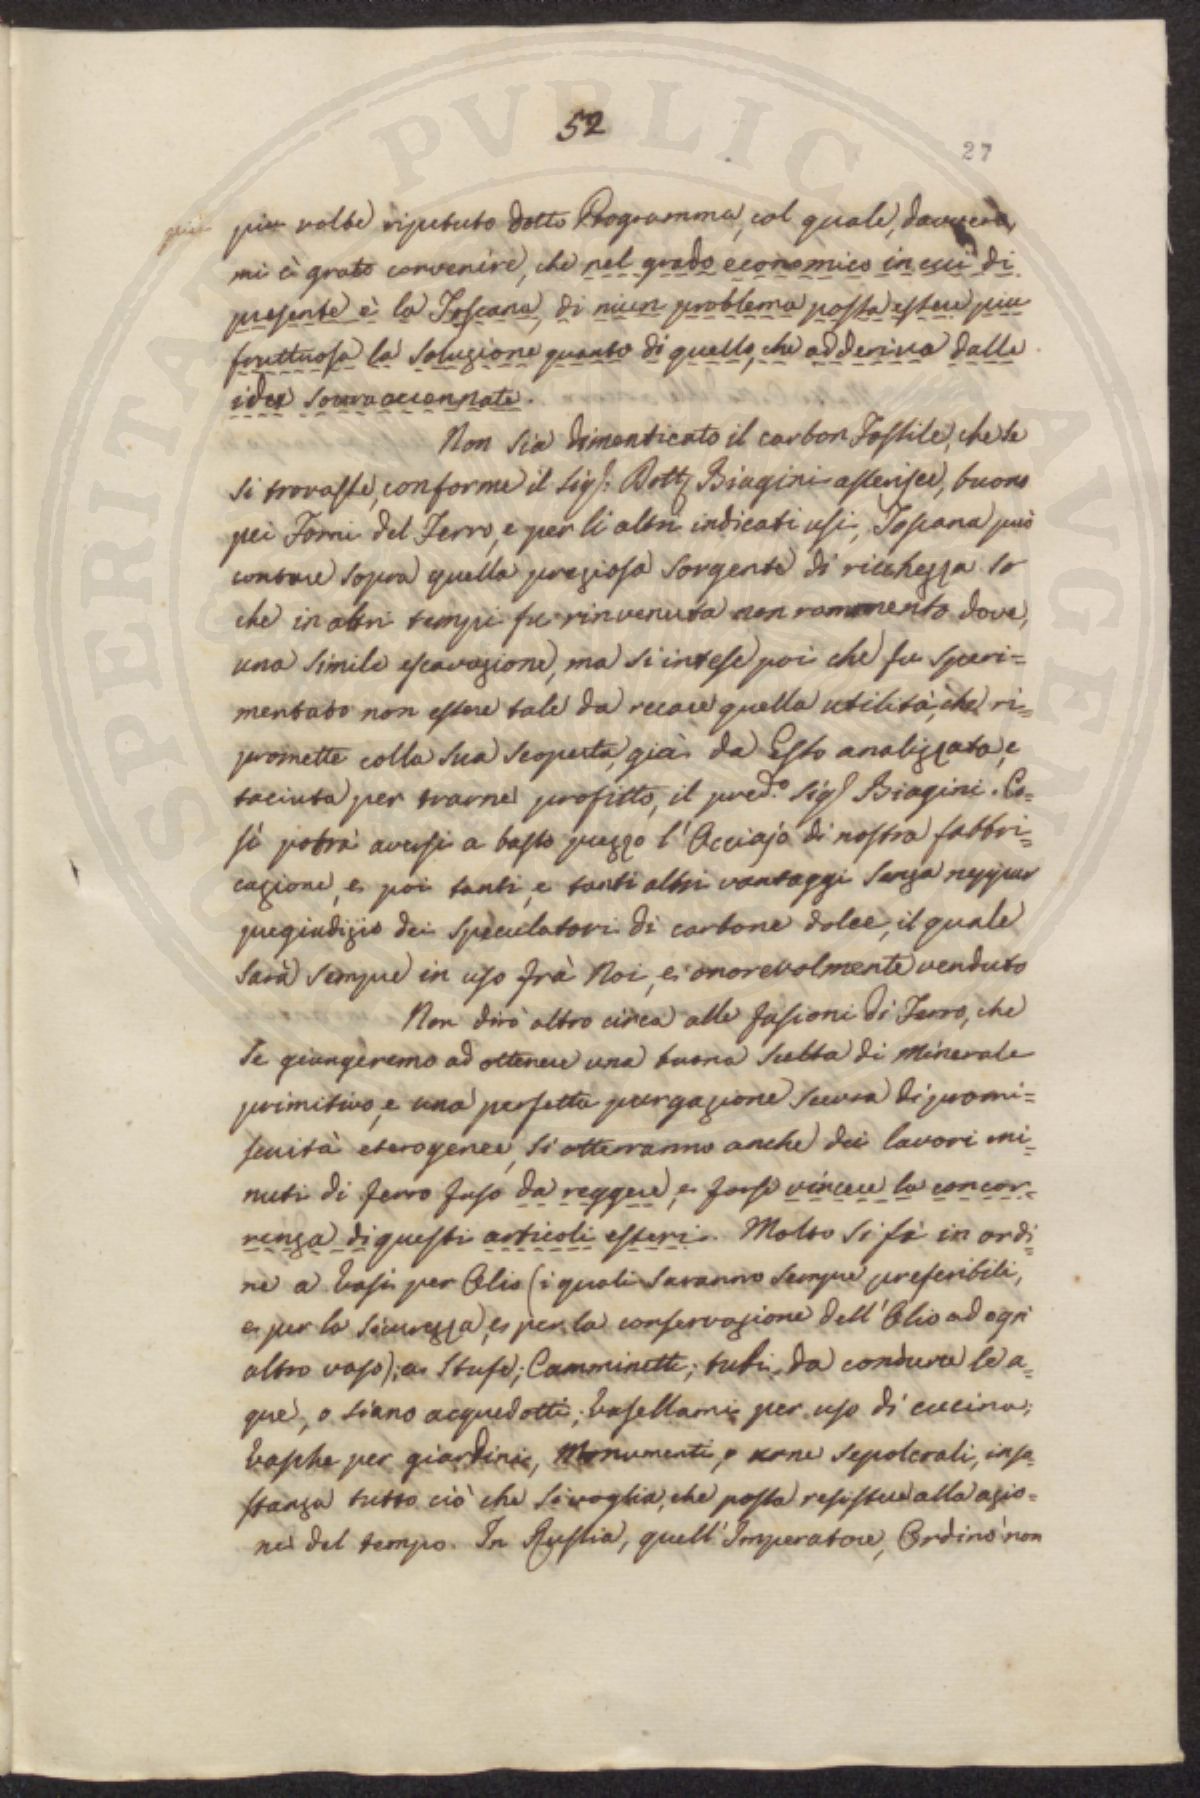 52
27
piu volte ripetuto dotto Programma, col quale, davvero,
mi è grato convenire, che nel grado economico in cui di
presente è la Toscana, di niun problema possa essere piu
fruttuosa la soluzione quanto di quello, che ad deriva dalle
idee sovraccennate.
Non sia dimenticato il carbon Fossile, che se
si trovasse, conforme il Sig.r Dott. Biagini asserisce, buono
pei Forni del Ferro, e per li altri indicati usi, Toscana può
contare sopra quella preziosa sorgente di ricchezza. So
che in altri tempi fu rinvenuta non rammento dove,
una simile escavazione, ma si intese poi che fu speri=
mentato non essere tale da recare quella utilità, che ri=
promette colla sua scoperta, già da Esso analizzata, e
taciuta per trarne profitto, il pred.o Sig.r Biagini. Co=
sì potrà aversi a basso prezzo l'Acciajo di nostra fabbri=
cazione, e poi tanti, e tanti altri vantaggi senza neppur
pregiudizio dei speculatori di carbone dolce, il quale
sarà sempre in uso frà Noi, e onorevolmente venduto
Non dirò altro circa alle fusioni di Ferro, che
se giungeremo ad ottenere una buona scelta di Minerale
primitivo, e una perfetta purgazione scevra di promi=
scuità eterogenee, si otterranno anche dei lavori mi=
nuti di ferro fuso da reggere, e forse vincere la concor=
renza di questi articoli esteri. Molto si fà in ordi=
ne a Vasi per Olio (i quali saranno sempre preferibili,
e per la sicurezza, e per la conservazione dell'Olio ad ogni
altro vaso); a Stufe; Camminetti; tubi, da condurre le a=
que, o siano acquedotti; Vasellami per uso di cucina;
Vasche per giardini, Monumenti, e urne sepolcrali, in so=
stanza tutto ciò che si voglia, che possa resistere alla azio=
ne del tempo. In Russia, quell'Imperatore, Ordinò non